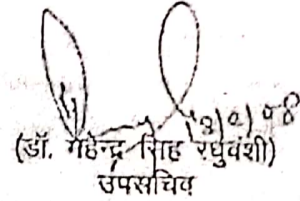 (डॉ. महेन्द्र सिंह रघुवंशी)
उपसचिव